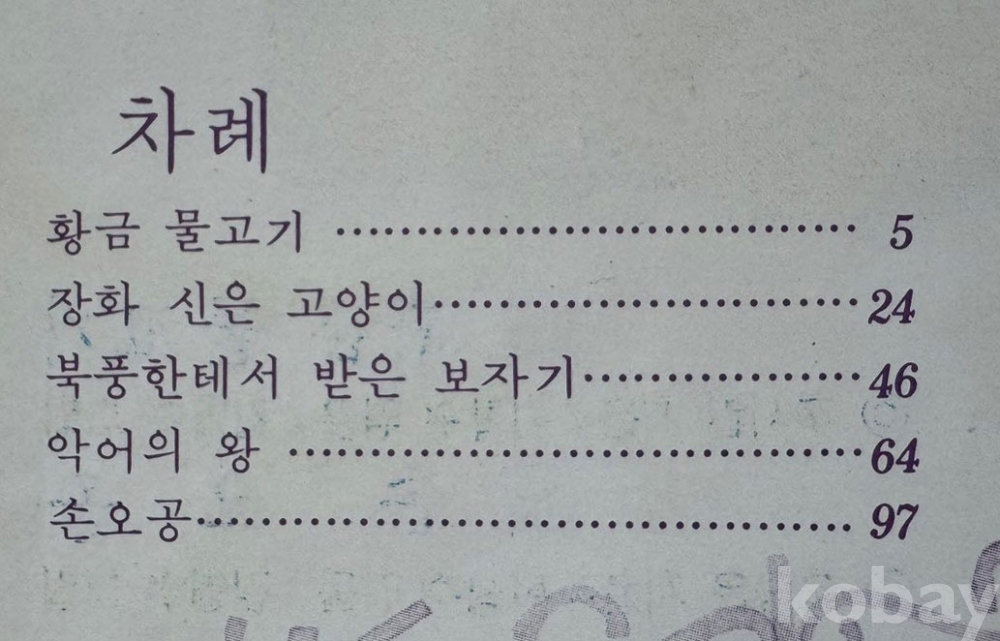 차례
황금 물고기 ································ 5
장화 신은 고양이···························· 24
북풍한테서 받은 보자기·················· 46
악어의 왕 ···································· 64
손오공········································ 97
kobay